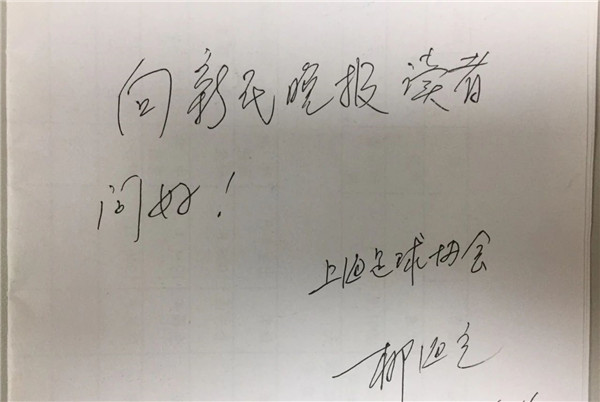 向新民晚报读者
问好!
上海足球协会
柳海光